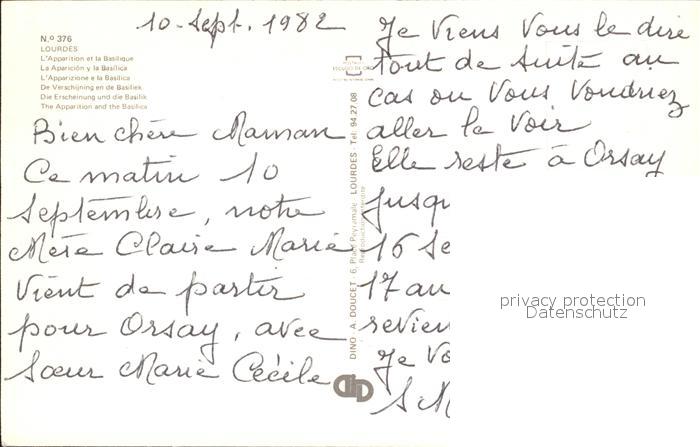 10 - Sept. 1982
N.º 376
LOURDES
L'Apparition et la Basilique
La Aparición y la Basílica
L'Apparizione e la Basilica
De Verschijning en de Basiliek
Die Erscheinung und die Basilik
The Apparition and the Basilica
Bien chère Maman
Ce matin 10
Septembre, notre
Mère Claire Marie
vient de partir
pour Orsay, avec
Sœur Marie Cécile
DINO - A. DOUCET - 6, Place Peyramale - LOURDES - Tél: 94.27.08
Je viens vous le dire
tout de suite au
cas ou vous voudriez
aller la voir
Elle reste à Orsay
jusqu
16 Se
17 au
revien
Je vo
S. M
privacy protection
Datenschutz